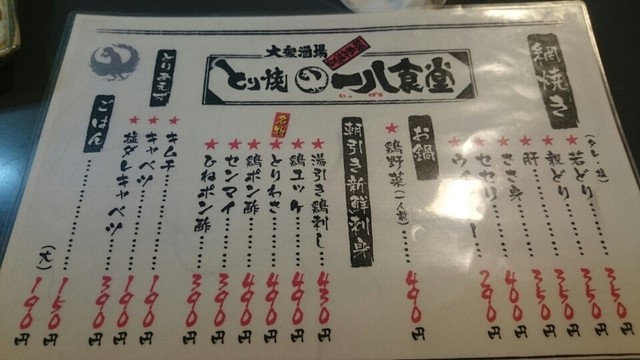 大衆酒場
とり焼 一八食堂
いっぱち
網焼き
(タレ・塩)
若どり 350円
親どり 350円
肝 350円
ささ身 400円
セセリ 290円
お鍋
鶏野菜(一人前) 490円
朝引き新鮮刺身
湯引き鶏刺し 430円
鶏ユッケ 490円
名物
とりわさ 490円
鶏ポン酢 490円
センマイ 390円
ひねポン酢 390円
とりあえず
キムチ 190円
キャベツ 190円
塩ダレキャベツ 390円
ごはん 150円
(大) 190円